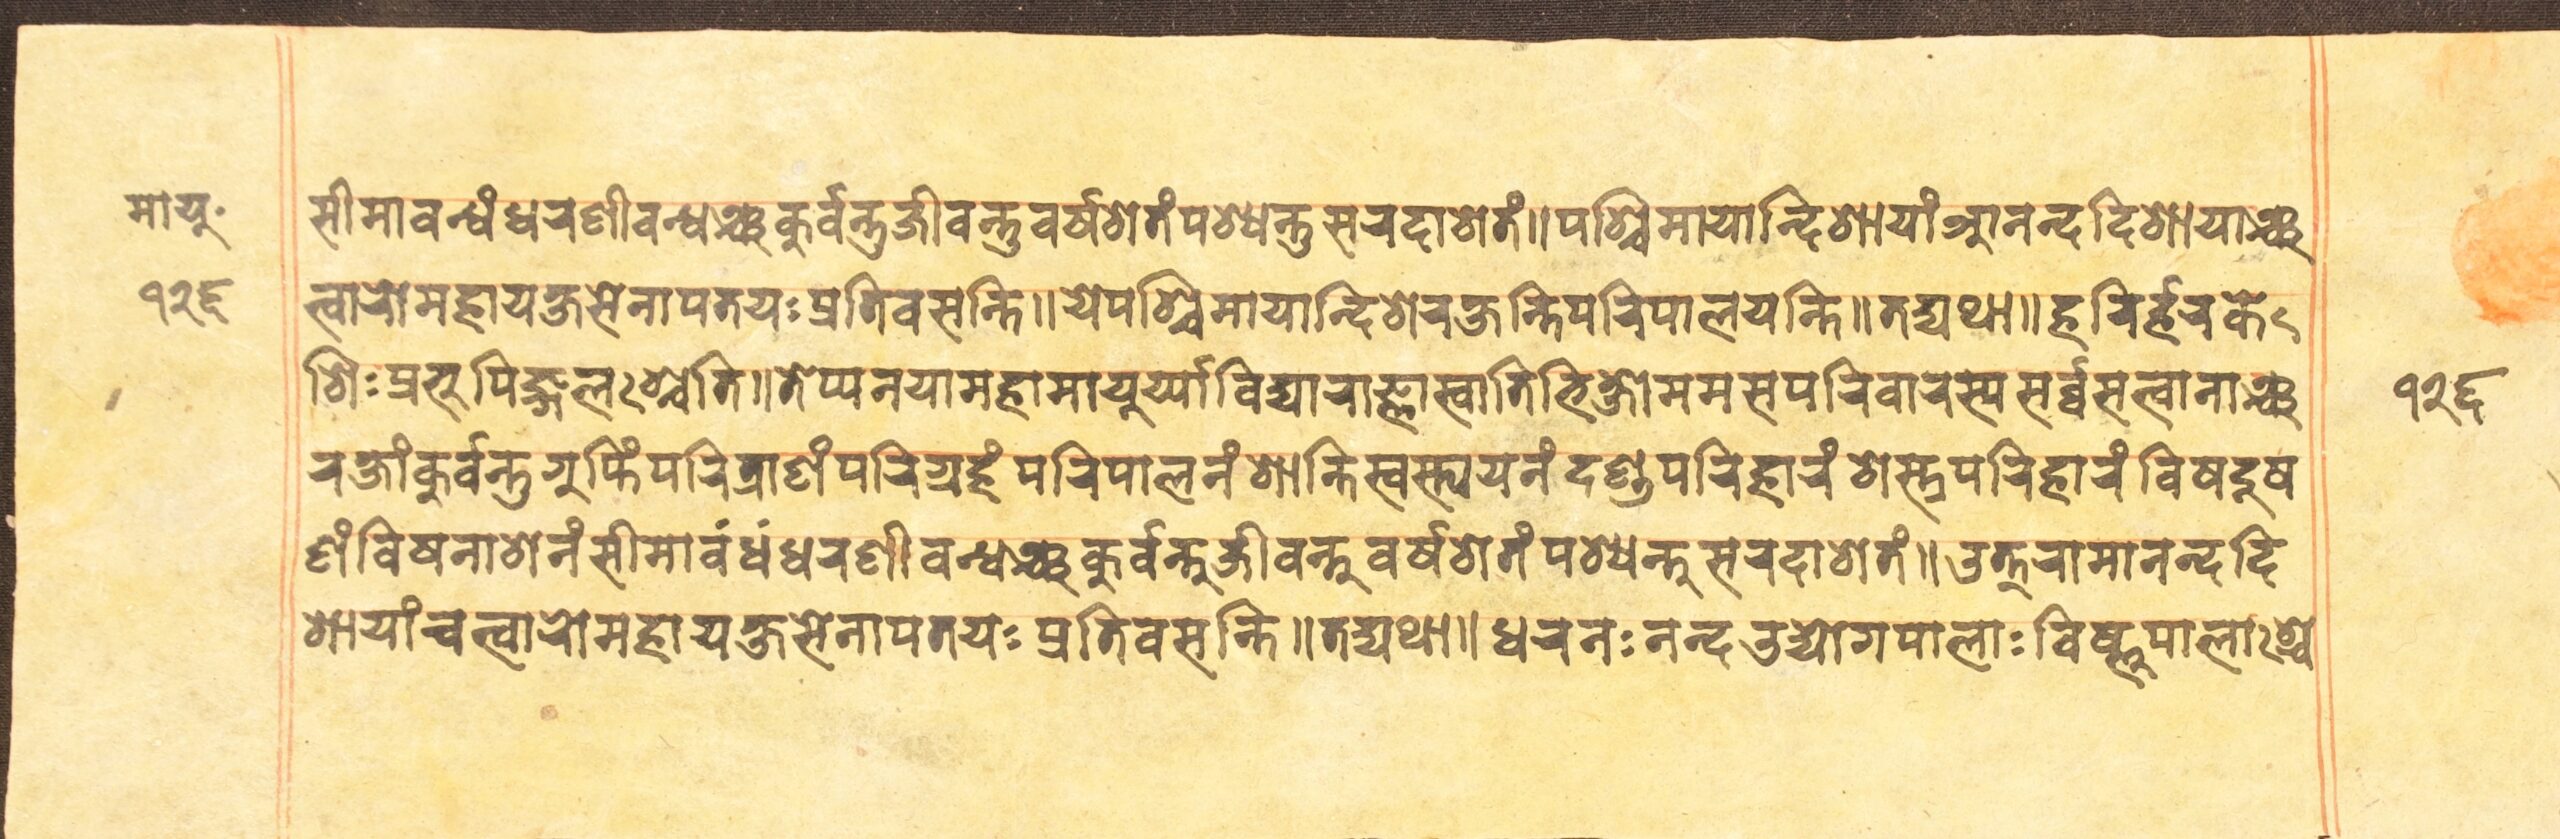 मायु॰
१२६
सीमाबन्धंधरणीबन्धञ्चकुर्वन्तुजीवन्तुवर्षशतंपश्यन्तुसरदाशतं॥पश्चिमायान्दिशायांआनन्ददिशायाञ्च
त्वारोमहायक्षसेनापतयःप्रतिवसन्ति॥येपश्चिमायान्दिशेरक्षन्तिपरिपालयन्ति॥तद्यथा॥हरिर्हरके
शिःप्रभुपिङ्गलःश्चेति॥तेप्यनयामहामायुर्य्याविद्याराज्ञास्वातिभिक्षोममसपरिवारस्यसर्व्वसत्वानाञ्च
रक्षांकुर्वन्तुगुप्तिंपरित्राणंपरिग्रहंपरिपालनंशान्तिस्वस्त्ययनंदण्डपरिहारंशस्त्रपरिहारंविषदूष
णंविषनाशनंसीमाबंधंधरणीबन्धञ्चकुर्वन्तुजीवन्तुवर्षशतंपश्यन्तुसरदाशतं॥उत्तरामानन्ददि
शायांचत्वारोमहायक्षसेनापतयःप्रतिवसन्ति॥तद्यथा॥धरनःनन्दउद्योगपालाःविष्णुपालाःश्चे
१२६